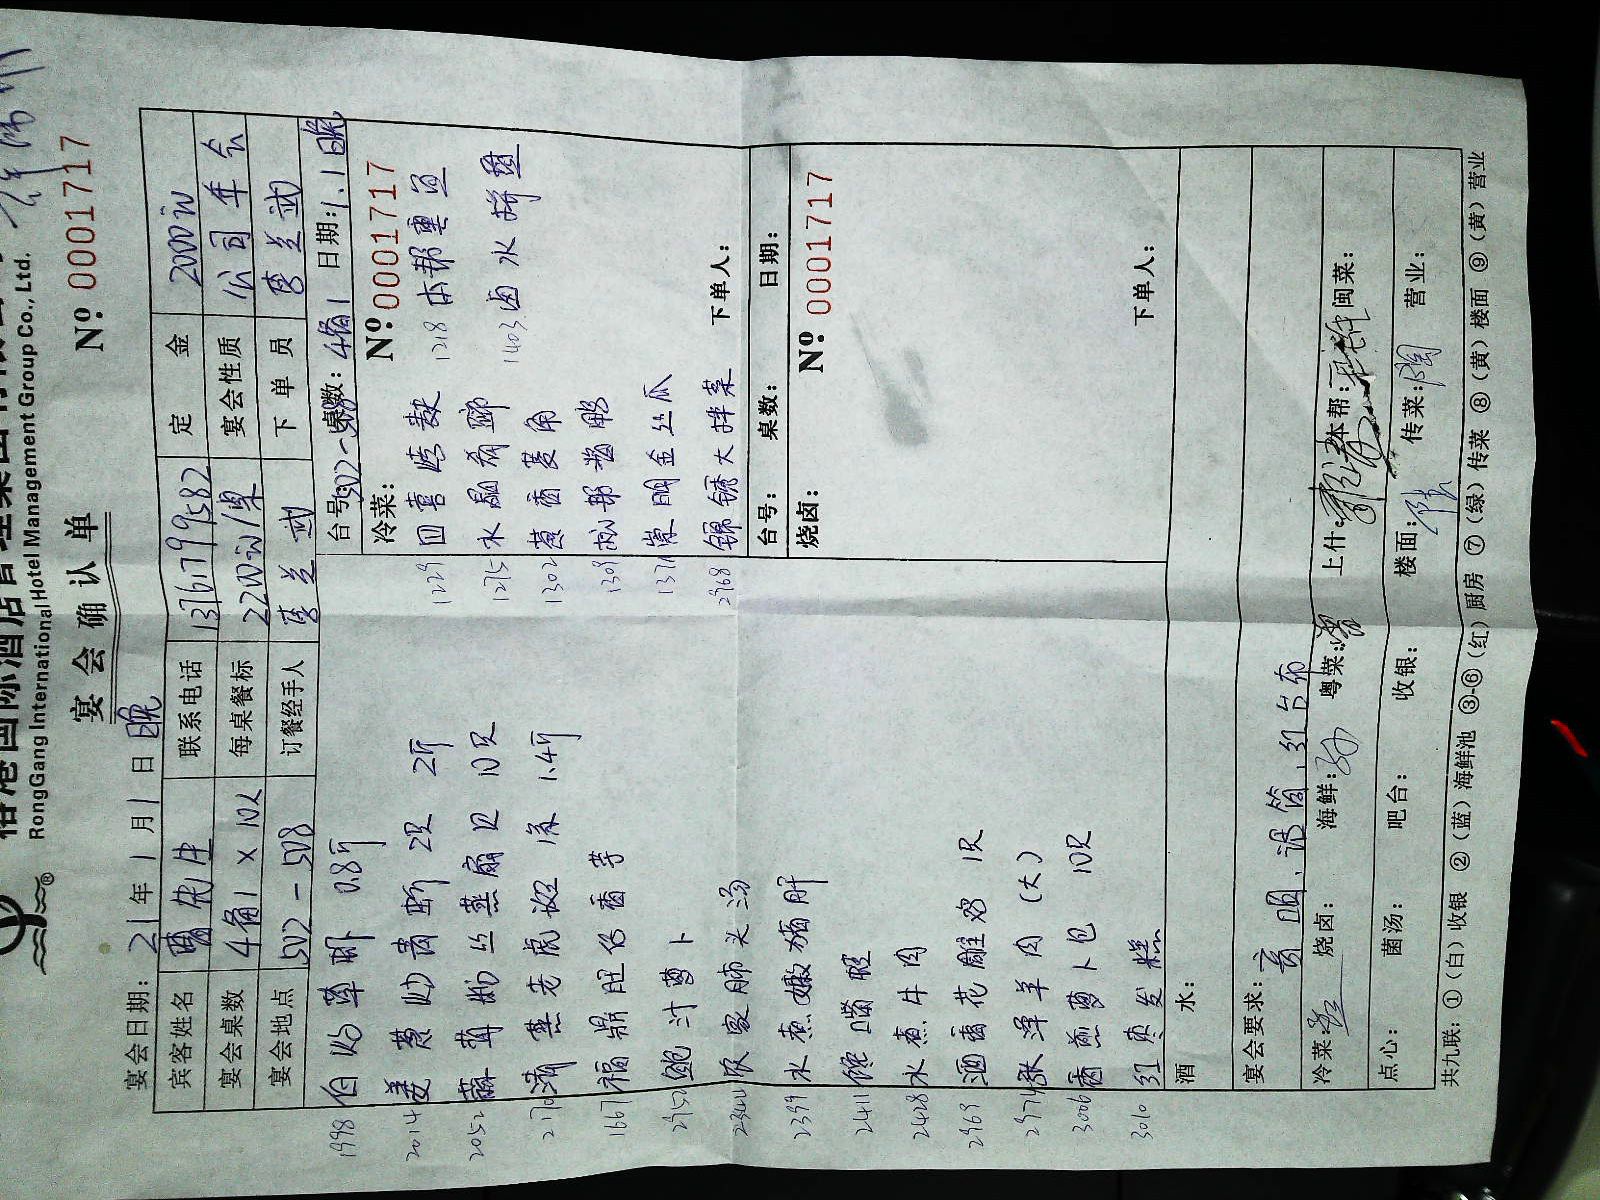 国际酒店管理集团有限公司
RongGang International Hotel Management Group Co., Ltd.
宴会确认单
Nº 0001717
宴会日期: 21年1月1日晚
宾客姓名 联系电话 13761799582 定金 2000元
宴会桌数 4桌1×10人 每桌餐标 2200元/桌 宴会性质 公司年会
宴会地点 502-508 订餐经手人 下单员
1998 白灼草虾 0.8斤
2014 姜葱炒膏蟹 2只 2斤
2052 蒜茸粉丝蒸扇贝 10只
2170 清蒸老虎斑 1条 1.4斤
1667 福鼎
鲍汁萝卜
农家
2399 水煮嫩猪肝
2411 馋嘴
2428 水煮牛肉
2969 酒香花雕鸡 1只
2974 羊肉(大)
3006 香煎萝卜包 10只
3010 红枣发糕
台号: 502-508 桌数: 4桌1 日期: 1.1晚
冷菜: Nº 0001717
1229 四喜烤麸
1218 本帮熏鱼
1275 水晶肴
1403 卤水拼盘
1302 茴香
1309
1371 金丝瓜
2968 锦绣大拌菜
下单人:
台号: 桌数: 日期:
烧卤: Nº 0001717
下单人:
酒水:
宴会要求: 话筒、红台布
冷菜: 烧卤: 海鲜: 粤菜: 上什: 本帮: 闽菜:
点心: 菌汤: 吧台: 收银: 楼面: 传菜: 营业:
共九联: ①(白)收银 ②(蓝)海鲜池 ③-⑥(红)厨房 ⑦(绿)传菜 ⑧(黄)楼面 ⑨(黄)营业